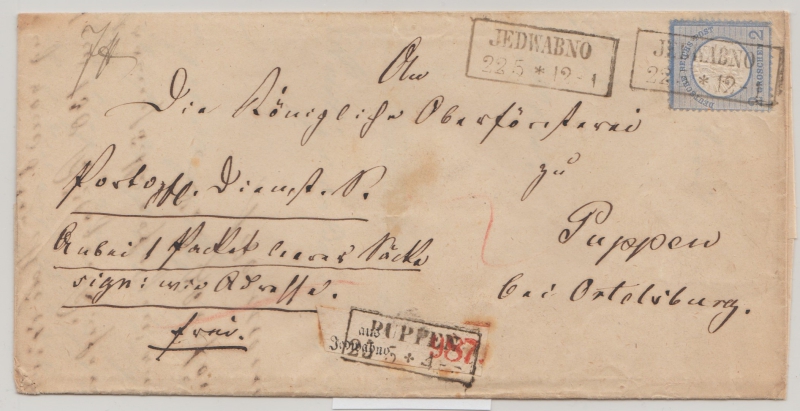 JEDWABNO
22 5 * 12-1
JEDWABNO
22 * 12
DEUTSCHE REICHS-POST
2 GROSCHEN 2
An
Die Königliche Oberförsterei
zu
Puppen
bei Ortelsburg.
Portopfl. Dienst. S.
Anbei 1 Packet leerer Säcke
sign: wie Adresse.
frei.
PUPPEN
23 5 * 4
aus
Jedwabno.
987.